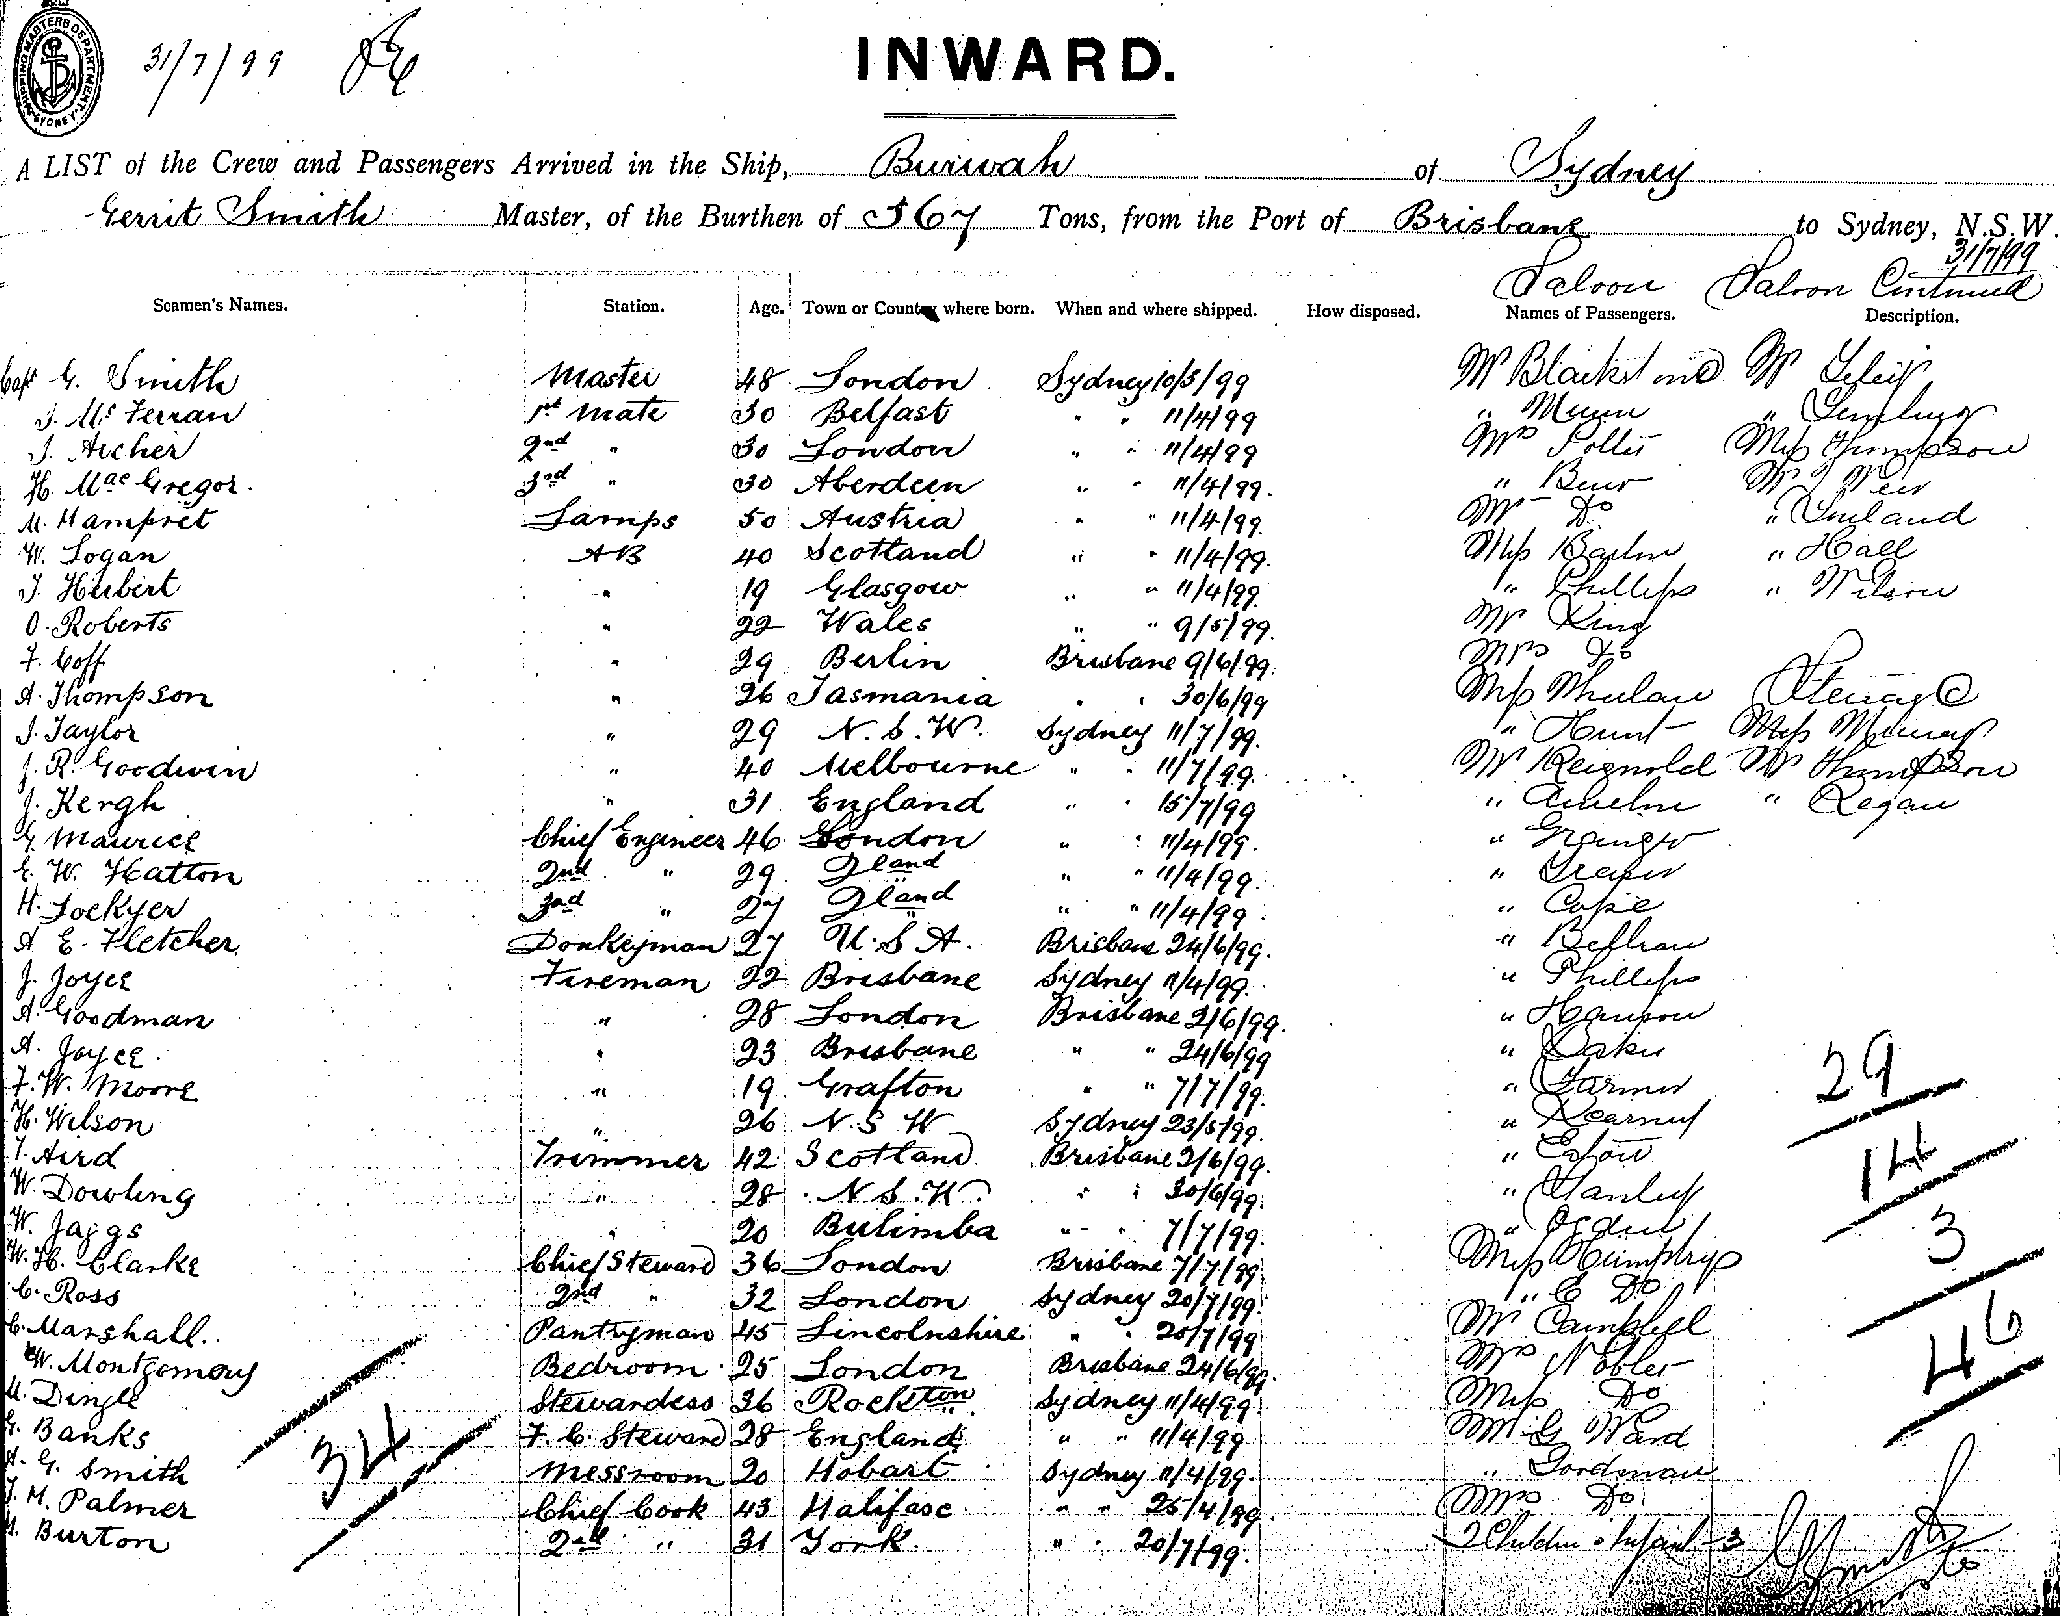 SHIPPING MASTERS DEPARTMENT SYDNEY
31/7/99
INWARD.
A LIST of the Crew and Passengers Arrived in the Ship, Burwah of Sydney
Gerrit Smith Master, of the Burthen of 567 Tons, from the Port of Brisbane to Sydney, N.S.W.
31/7/99
Saloon Saloon Continued
Seamen's Names. Station. Age. Town or Country where born. When and where shipped. How disposed. Names of Passengers. Description.
Capt G. Smith Master 48 London Sydney 10/5/99 Mr Blackstone Mr
J. McFerran 1st Mate 30 Belfast " " 11/4/99 " Munn "
J. Archer 2nd " 30 London " " 11/4/99 Mrs Miss Thompson
H. MacGregor. 3rd " 30 Aberdeen " " 11/4/99. " Mr Weir
M. Hampret Lamps 50 Austria " " 11/4/99. Mr Do "
W. Logan AB 40 Scotland " " 11/4/99. Miss " Hall
J. Heibert " 19 Glasgow " " 11/4/99. " Phillips " Wilson
O. Roberts " 22 Wales " " 9/5/99. Mr King
F. Goff " 29 Berlin Brisbane 9/6/99. Mrs Do
A. Thompson " 26 Tasmania " " 30/6/99 Miss Steerage
J. Taylor " 29 N. S. W. Sydney 11/7/99. " Hunt Miss Murray
J. R. Goodwin " 40 Melbourne " " 11/7/99. Mr Reignold Mr Thompson
J. Kergh " 31 England " " 15/7/99 " " Regan
G. Maurice Chief Engineer 46 London " " 11/4/99. "
E. W. Hatton 2nd " 29 " " 11/4/99. "
H. Lockyer 3rd " 27 " " 11/4/99. "
A E. Fletcher Donkeyman 27 U. S A. Brisbane 24/6/99. "
J. Joyce Fireman 22 Brisbane Sydney 11/4/99. " Phillips
A. Goodman " 28 London Brisbane 2/6/99. " Hanson
A. Joyce. " 23 Brisbane " " 24/6/99 "
F. W. Moore " 19 Grafton " " 7/7/99. " Farmer
H. Wilson " 26 N. S W Sydney 23/5/99. " Kearney
Aird Trimmer 42 Scotland Brisbane 2/6/99. "
W. Dowling " 28 N. S. W. " " 30/6/99. "
W. Jaggs " 20 Bulimba " " 7/7/99. " Ogden
W. H. Clarke Chief Steward 36 London Brisbane 7/7/99 Miss Humphrys
C. Ross 2nd " 32 London Sydney 20/7/99. " E Do
C. Marshall. Pantryman 45 Lincolnshire " " 20/7/99 Mr Campbell
W. Montgomery Bedroom 25 London Brisbane 24/6/99. Mrs
M. Dingle Stewardess 36 Rockton Sydney 11/4/99. Miss Do
G. Banks F. C. Steward 28 England " " 11/4/99 Mr G Ward
A. G. Smith Messroom 20 Hobart Sydney 11/4/99. " Gordman
M. Palmer Chief Cook 43 Halifax " " 25/4/99 Mrs Do
Burton 2nd " 31 York. " " 20/7/99. 2 Children Infant 3
34
29
14
3
46